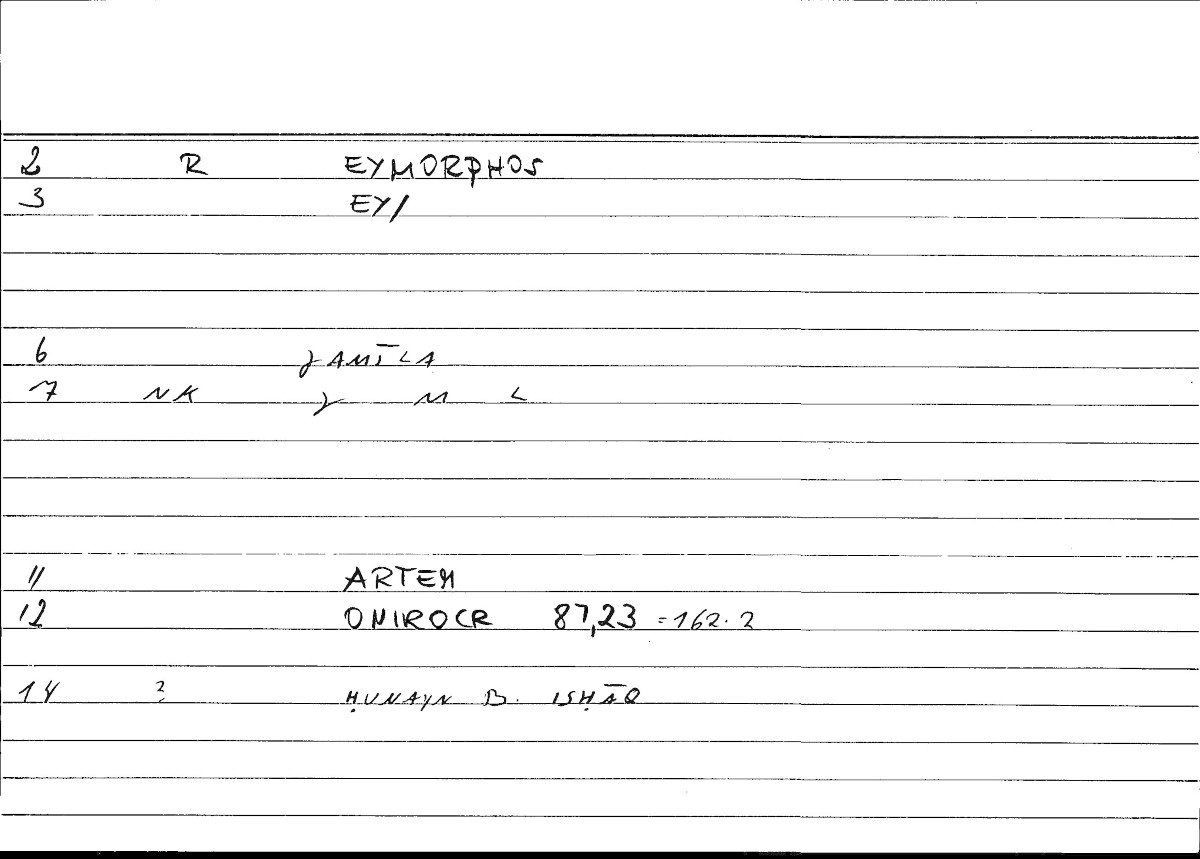 2 R EYMORPHOS
3 EY/
6 ǦAMĪLA
7 NK Ǧ M L
11 ARTEM
12 ONIROCR 87,23 =162.2
14 ? ḤUNAYN B. ISḤĀQ